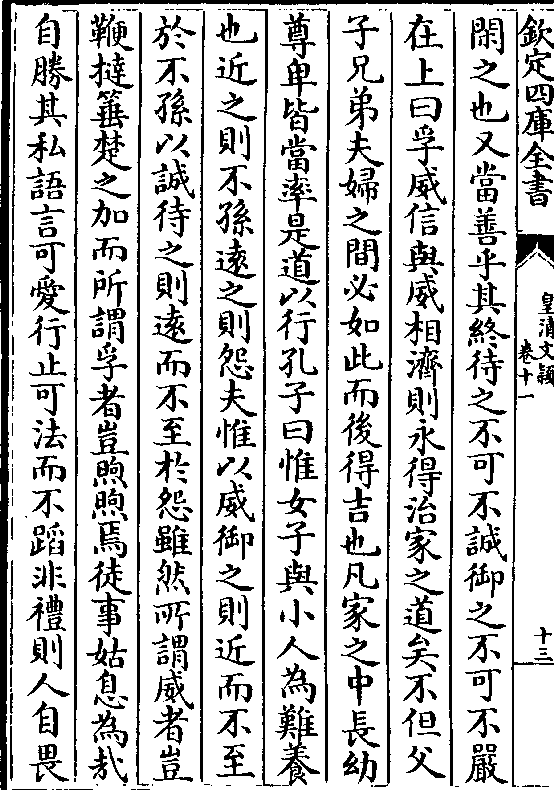 欽定四庫全書
皇清文穎
卷十一
十三
閑之也又當善乎其終待之不可不誠御之不可不嚴
在上曰孚威信與威相濟則永得治家之道矣不但父
子兄弟夫婦之間必如此而後得吉也凡家之中長幼
尊卑皆當率是道以行孔子曰惟女子與小人為難養
也近之則不孫逺之則怨夫惟以威御之則近而不至
於不孫以誠待之則逺而不至於怨雖然所謂威者豈
鞭撻箠楚之加而所謂孚者豈煦煦焉徒事姑息為哉
自勝其私語言可愛行止可法而不蹈非禮則人自畏